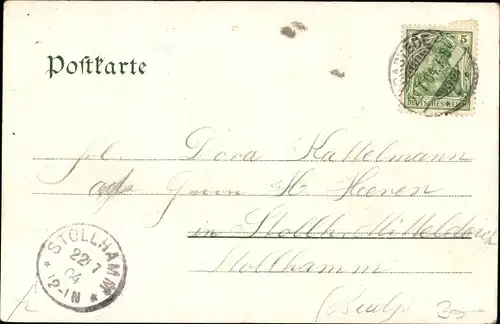 Postkarte
5
DEUTSCHES REICH
RASTEDE
04
Frl. Dora Kattelmann
Herrn H. Heeren
in Stollh. Mitteldeich
Stollhamm
STOLLHAMM
22/7
04
12-1N